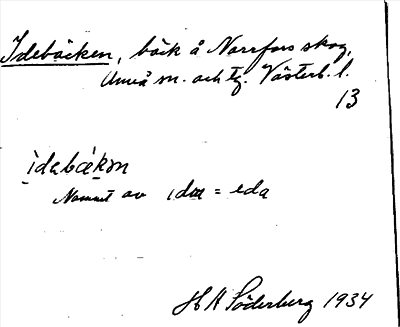 Idebäcken, bäck å Norrfors skog,
Umeå sn. och tg. Västerb. l.
13
ìdabækən
Namnet av ida = eda
H A Söderberg 1934